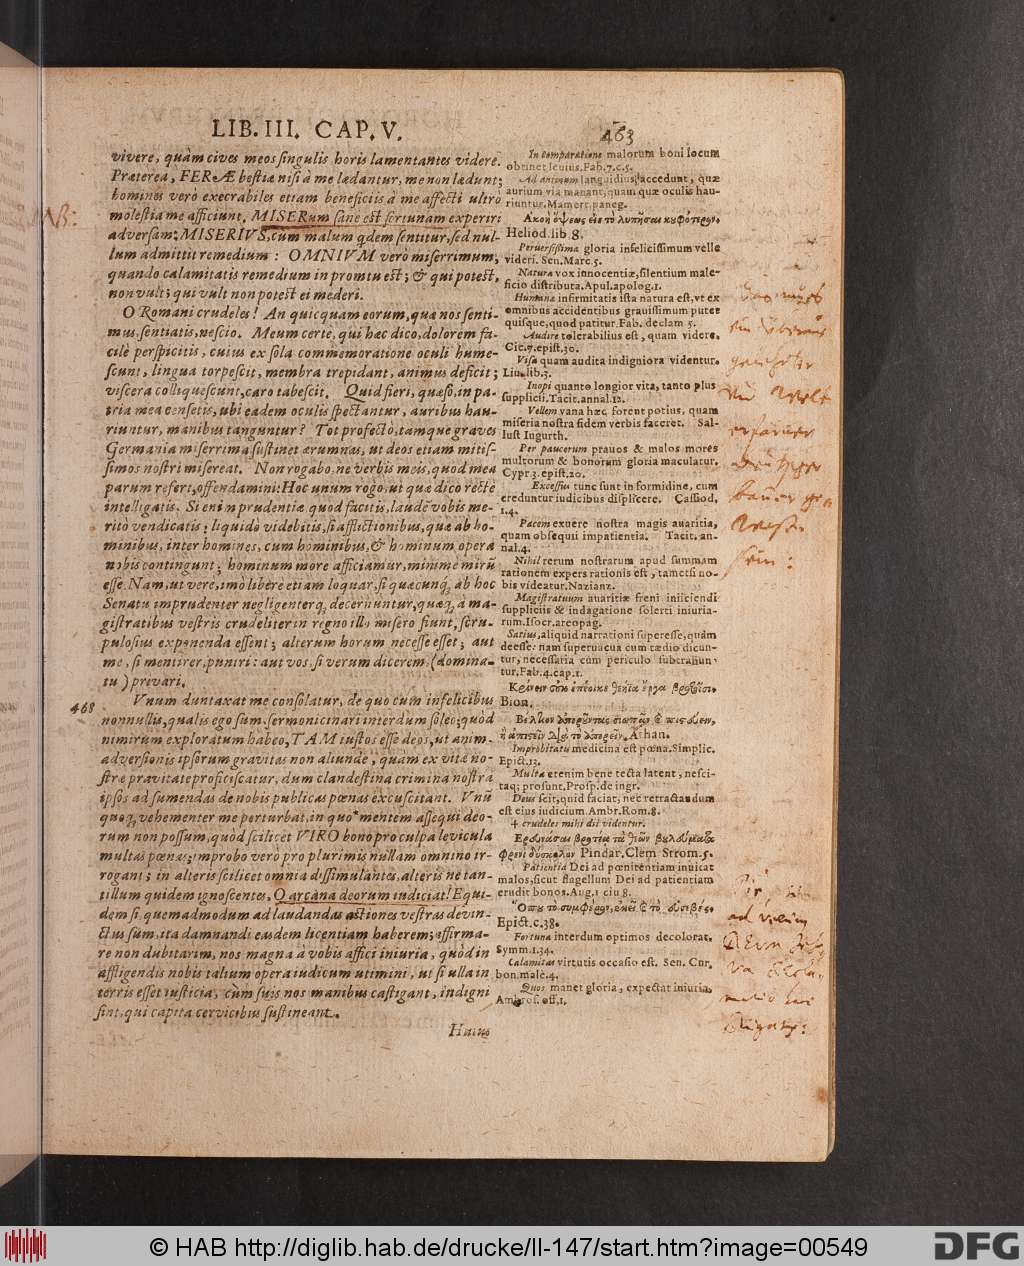 LIB. III. CAP. V.
463
vivere, quàm cives meos singulis horis lamentantes videre.
Præterea, FERÆ bestiæ nisi à me lædantur, me non lædunt;
homines verò execrabiles etiam beneficiis à me affecti ultrò
molestia me afficiunt. MISERum sane est fortunam experiri
adversam: MISERIVS, cum malum qdem sentitur, sed nul-
lum admittit remedium: OMNIVM verò miserrimum,
quando calamitatis remedium in promtu est; & qui potest,
non vult; qui vult non potest ei mederi.
O Romani crudeles! An quicquam eorum, quæ nos senti-
mus, sentiatis, nescio. Meum certè, qui hæc dico, dolorem fa-
cilè perspicitis, cuius ex sola commemoratione oculi hume-
scunt, lingua torpescit, membra trepidant, animus deficit;
viscera colliquescunt, caro tabescit. Quid fieri, quæso, in pa-
tria mea censetis, ubi eadem oculis spectantur, auribus hau-
riuntur, manibus tanguntur? Tot profectò, tamque graves
Germania miserrima sustinet ærumnas, ut deos etiam mitis-
simos nostri misereat. Non rogabo, ne verbis meis, quod mea
parum refert, offendamini: Hoc unum rogo, ut quæ dico rectè
intelligatis. Si enim prudentiæ quod facitis, laudẽ vobis me-
ritò vendicatis; liquidò videbitis, si afflictionibus, quæ ab ho-
minibus, inter homines, cum hominibus, & hominum opera
nobis contingunt; hominum more afficiamur, minime mirũ
esse. Nam, ut verè, imò liberè etiam loquar, si quæcunq, ab hoc
Senatu imprudenter negligenterq, decernuntur, quæq, à ma-
gistratibus vestris crudeliter in regno illo misero fiunt, scru-
pulosius exponenda essent; alterum horum necesse esset; aut
me, si mentirer, puniri: aut vos, si verum dicerem, (domina-
tu) privari.
468
Vnum duntaxat me consolatur, de quo cum infelicibus
nonnullis, qualis ego sum, sermonicinari interdum soleo; quòd
nimirum exploratum habeo, TAM iustos esse deos, ut anim-
adversionis ipsorum gravitas non aliunde, quam ex vitæ no-
stræ pravitate proficiscatur, dum clandestina crimina nostra
ipsos ad sumendas de nobis publicas pœnas excuscitant. Vnũ
quoq, vehementer me perturbat, in quo mentem assequi deo-
rum non possum, quòd scilicet VIRO bono pro culpa levicula
multas pœnas; improbo verò pro plurimis nullam omnino ir-
rogant; in alteris scilicet omnia dissimulantes, alteris ne tan-
tillum quidem ignoscentes. O arcana deorum iudicia! Equi-
dem si, quemadmodum ad laudandas actiones vestras devin-
ctus sum, ita damnandi easdem licentiam haberem; affirma-
re non dubitarim, nos magna à vobis affici iniuria, quòd in
affligendis nobis talium opera iudicum utimini, ut si ulla in
terris esset iusticia, cùm suis nos manibus castigant, indigni
sint, qui capita cervicibus sustineant.
In comparatione malorum boni locum
obtinet levius. Fab. 7. c. 5.
Ad animum languidius accedunt, quæ
aurium via manant, quam quæ oculis hau-
riuntur. Mamert. paneg.
Heliod. lib. 8.
Perversissima gloria infelicissimum velle
videri. Sen. Marc. 5.
Natura vox innocentiæ, silentium male-
ficio distributa. Apul. apolog. 1.
Humanæ infirmitatis ista natura est, vt ex
omnibus accidentibus grauissimum putet
quisque, quod patitur. Fab. declam 5.
Audire tolerabilius est, quam videre.
Cic. 7. epist. 30.
Visa quam audita indigniora videntur.
Liu. lib. 3.
Inopi quanto longior vita, tanto plus
supplicii. Tacit. annal. 12.
Vellem vana hæc forent potius, quam
miseria nostra fidem verbis faceret. Sal-
lust Iugurth.
Per paucerum prauos & malos mores
multorum & bonorum gloria maculatur.
Cypr. 3. epist. 20.
Excessus tunc sunt in formidine, cum
creduntur iudicibus displicere. Cassiod.
1. 4.
Pacem exuere nostra magis avaritia,
quam obsequii impatientia. Tacit. an-
nal. 4.
Nihil rerum nostrarum apud summam
rationem expers rationis est, tametsi no-
bis videatur. Nazianz.
Magistratuum avaritiæ freni iniiciendi
suppliciis & indagatione solerti iniuria-
rum. Isocr. areopag.
Satius, aliquid narrationi superesse, quam
deesse: nam supervacua cum tædio dicun-
tur, necessaria cum periculo subtrahun-
tur. Fab. 4. cap. 1.
Bion.
Athan.
Improbitatis medicina est pœna. Simplic.
Epict. 13.
Multa etenim bene tecta latent, nesci-
taq; prosunt. Prosp. de ingr.
Deus scit, quid faciat, nec retractandum
est eius iudicium. Ambr. Rom. 8.
4 crudeles mihi dii videntur.
Pindar. Clem Strom. 5.
Patientia Dei ad pœnitentiam inuitat
malos, sicut flagellum Dei ad patientiam
erudit bonos. Aug. 1 ciu 8.
Epict. c. 38.
Fortuna interdum optimos decolorat.
Symm. 1. 34.
Calamitas virtutis occasio est. Sen. Cur.
bon. malè. 4.
Quos manet gloria, expectat iniuria.
Ambros. off. 1.
© HAB http://diglib.hab.de/drucke/ll-147/start.htm?image=00549
DFG